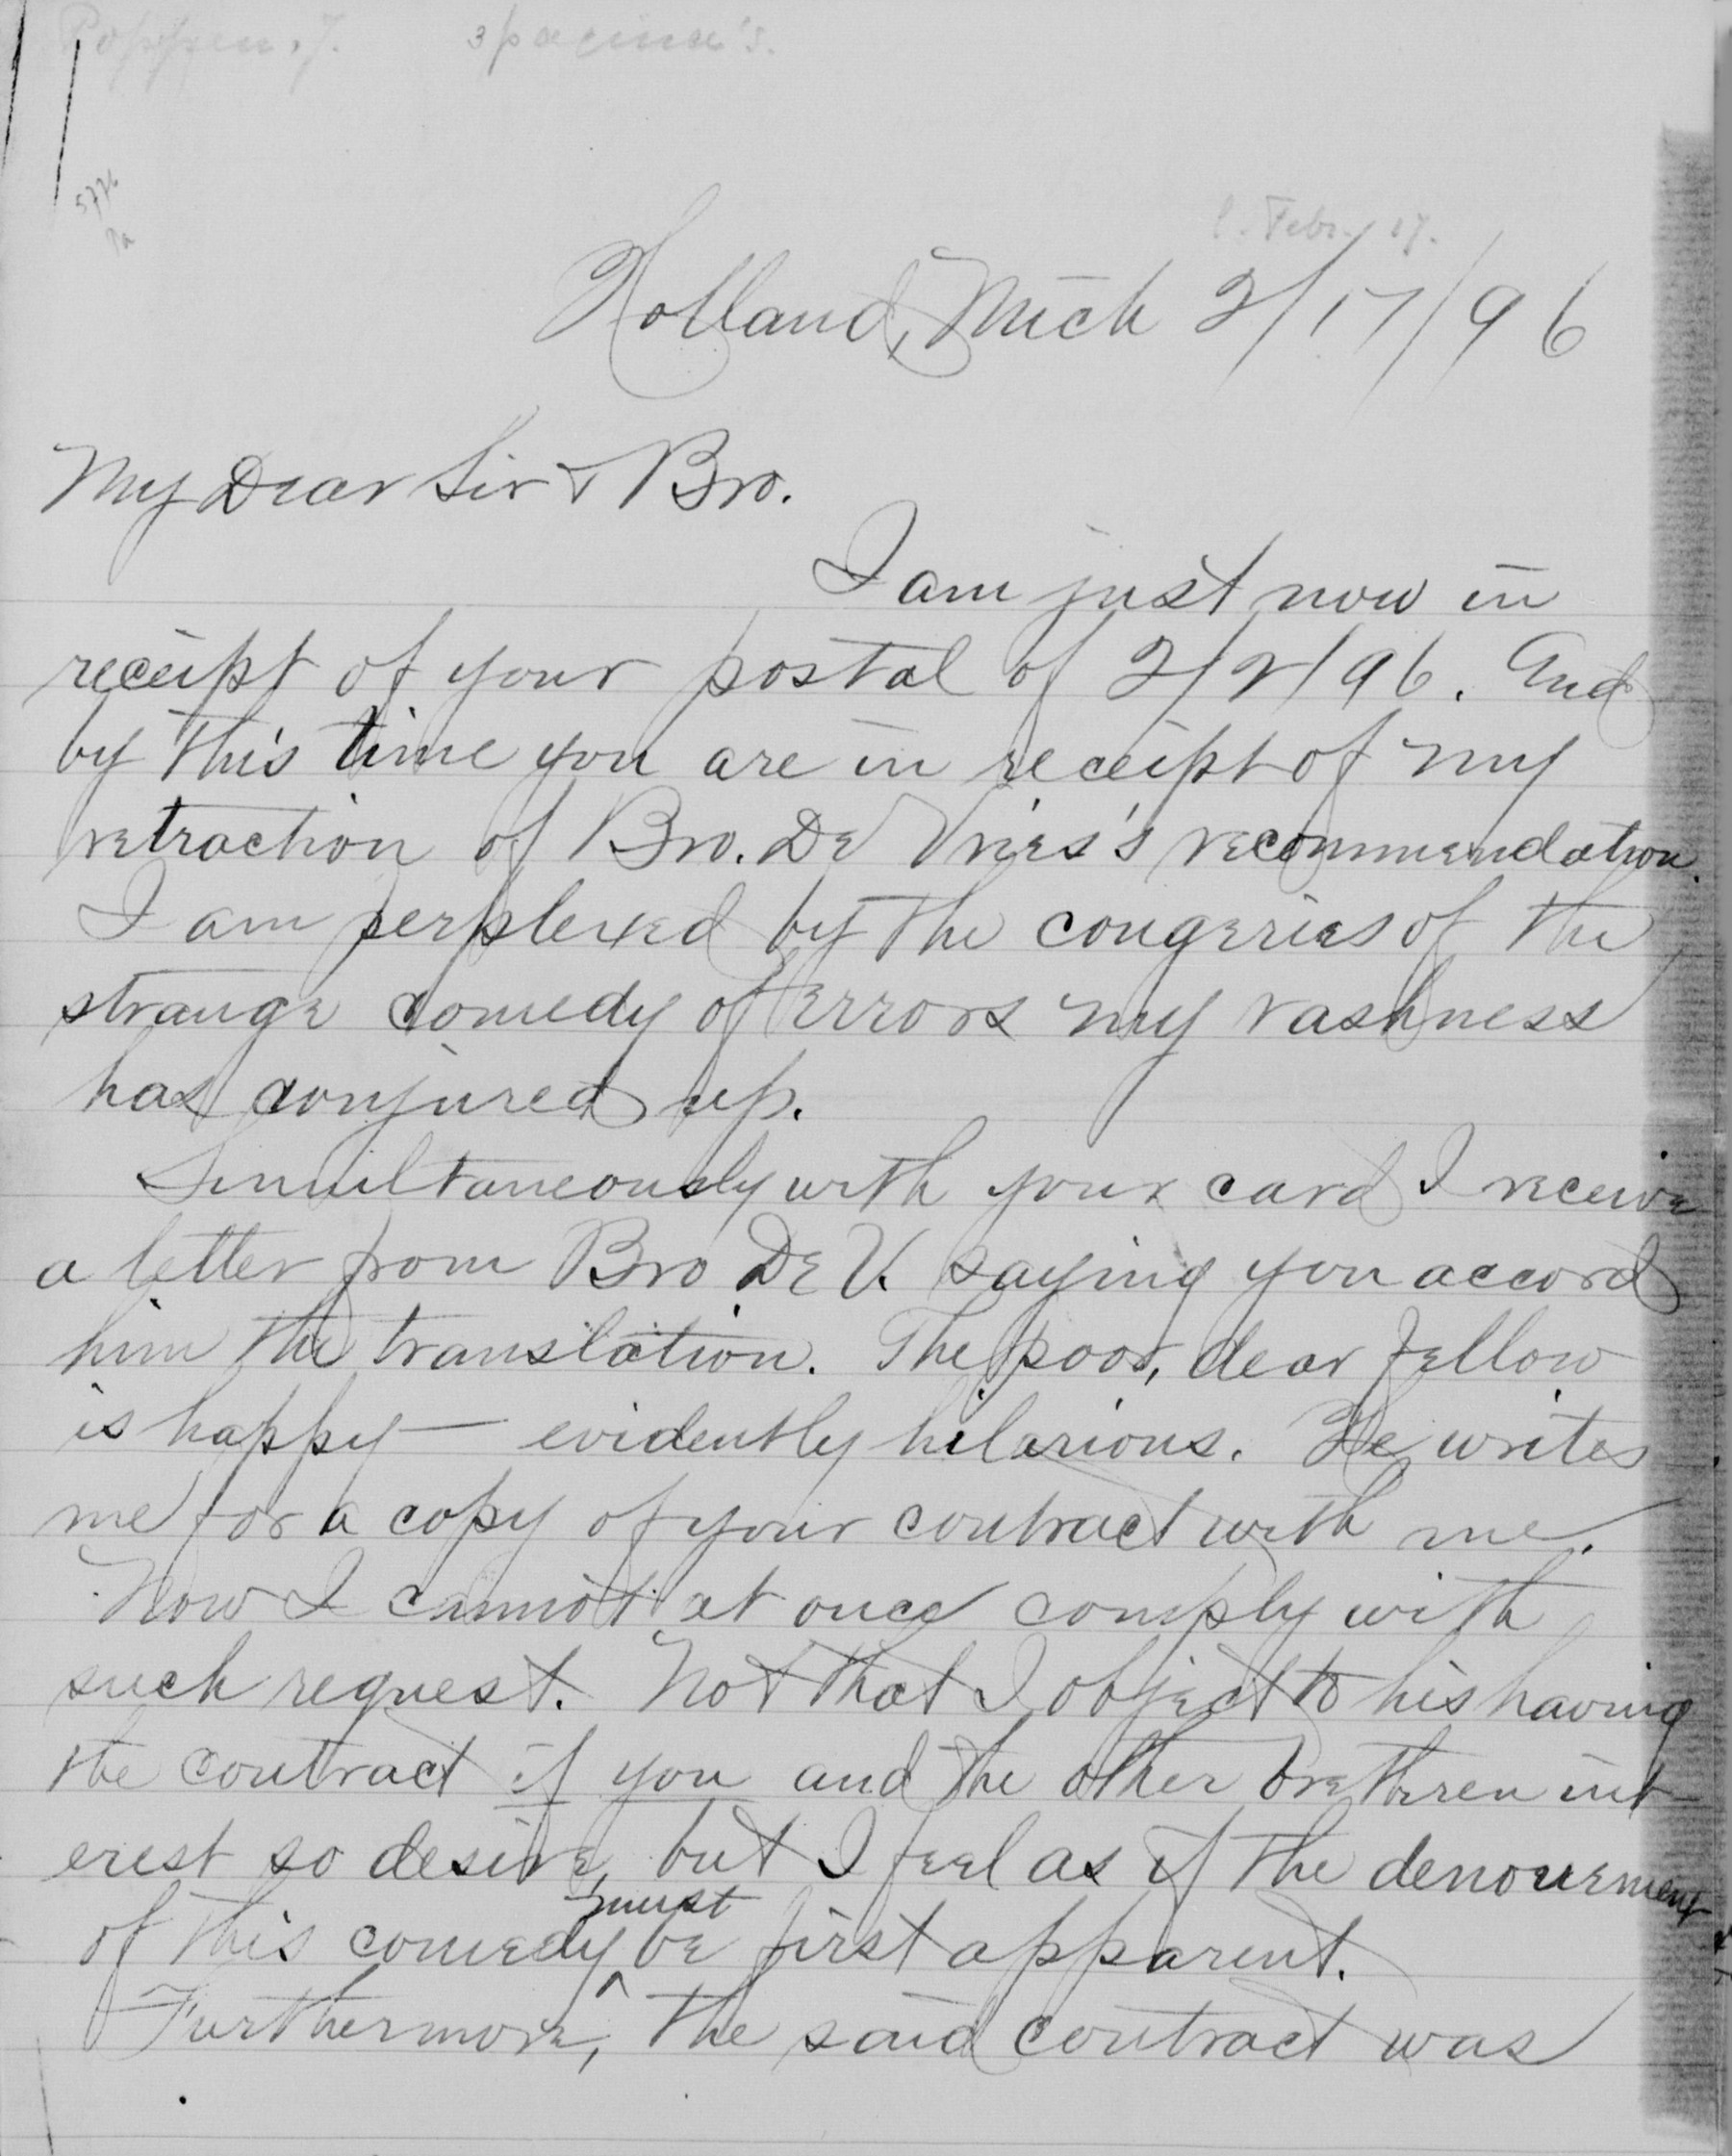 5776
Holland, Mich 2/17/96
My Dear Sir & Bro.
I am just now in
receipt of your postal of 2/2/96. And
by this time you are in receipt of my
retraction of Bro. De Vries's recommendation.
I am perplexed by the congeries of the
strange comedy of errors my rashness
has conjured up.
Simultaneously with your card I receive
a letter from Bro De V. saying you accord
him the translation. The poor, dear fellow
is happy — evidently hilarious. He writes
me for a copy of your contract with me.
Now I cannot at once comply with
such request. Not that I object to his having
the contract if you and the other brethren int-
erest so desire, but I feel as if the denouement
of this comedy must be first apparent.
Furthermore, the said contract was